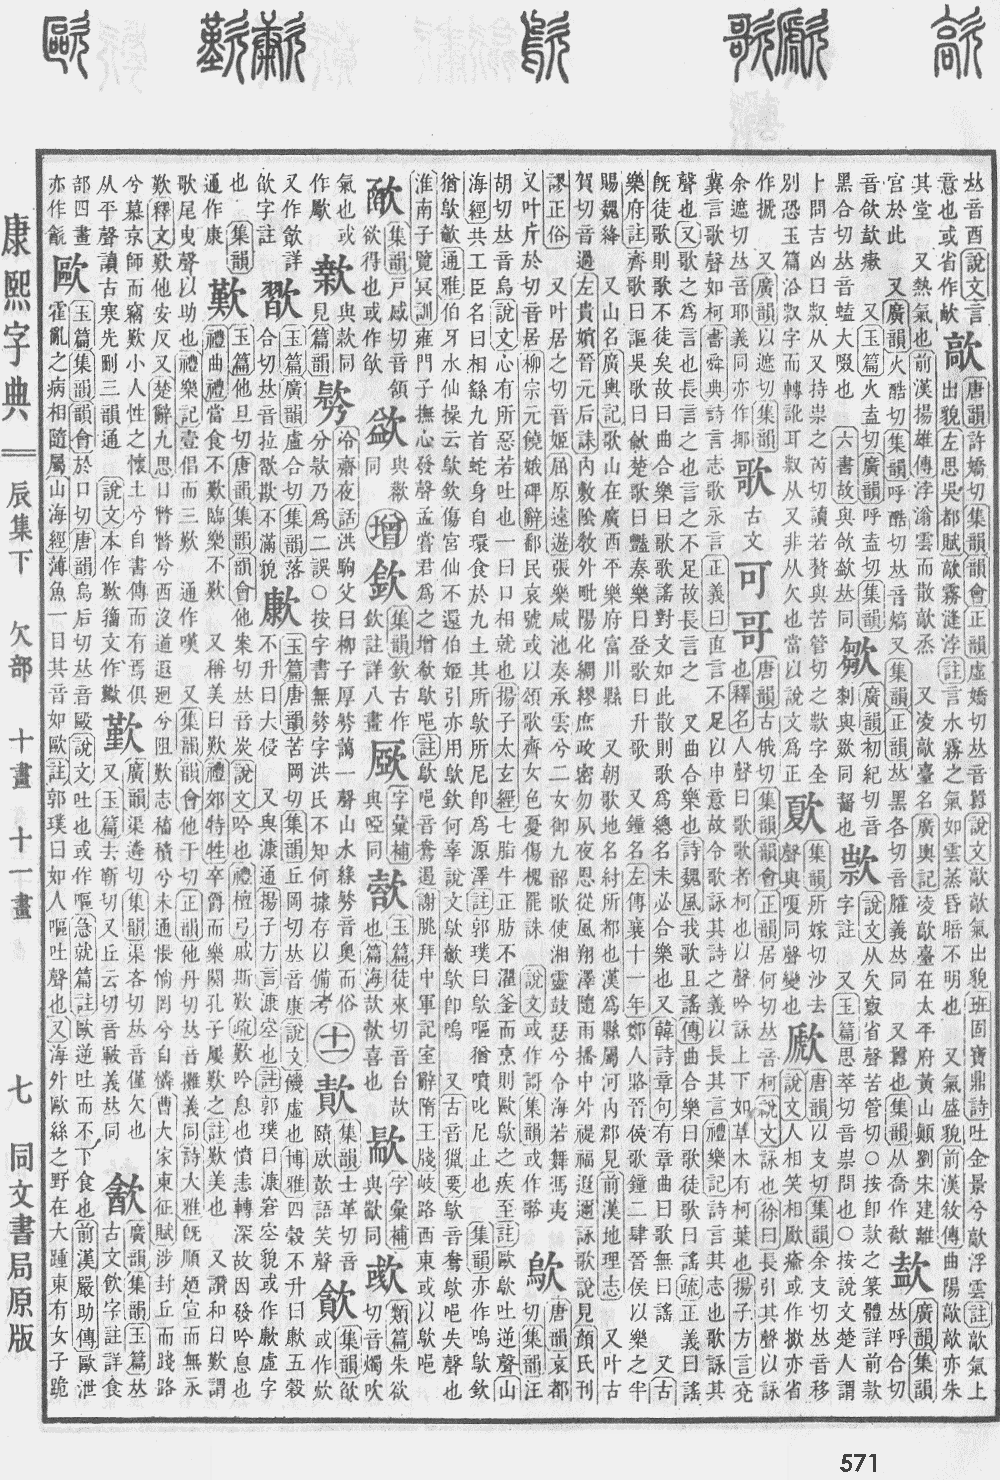 𠀤音酉說文言
意也或省作㰶
歊
唐韻許嬌切集韻韻會正韻虛嬌切𠀤音囂說文歊歊氣出貌班固寶鼎詩吐金景兮歊浮雲註歊氣上
出貌左思吳都賦歊霧漨浡註言水霧之氣如雲蒸昏暗不明也 又氣盛貌前漢揚雄傳曲陽歊歊亦朱
其堂 又熱氣也前漢揚雄傳浡滃雲而散歊烝 又凌歊臺名廣輿記凌歊臺在太平府黃山顛劉宋建離
宮於此 又廣韻火酷切集韻呼酷切𠀤音熇又集韻正韻𠀤黑各切音臛義𠀤同 又囂也集韻从喬作
廣韻集韻𠀤呼合切
音欱 又玉篇火盍切廣韻呼盍切集韻
黑合切𠀤音嗑大啜也 六書故與欱𠀤同
廣韻初紀切音
剌與歠同齧也
款字註 又玉篇思萃切音祟問也○按說文楚人謂
說文从欠窾省聲苦管切○按卽款之篆體詳前款
卜問吉凶曰㱾从又持祟之芮切讀若贅與苦管切之歀字全
別恐玉篇洽㱾字而轉訛耳㱾从又非从欠也當以說文爲正
集韻所嫁切沙去
聲與嗄同聲變也
唐韻以支切集韻余支切𠀤音移
說文人相笑相歋瘉或作擨亦省
作搋 又廣韻以遮切集韻
余遮切𠀤音耶義同亦作揶
歌
古文
可哥
唐韻古俄切集韻韻會正韻居何切𠀤音柯說文詠也徐曰長引其聲以詠
也釋名人聲曰歌歌者柯也以聲吟詠上下如草木有柯葉也揚子方言兗
冀言歌聲如柯書舜典詩言志歌永言正義曰直言不足以申意故令歌詠其詩之義以長其言禮樂記詩言其志也歌詠其
聲也又歌之爲言也長言之也言之不足故長言之 又曲合樂也詩魏風我歌且謠傳曲合樂曰歌徒歌曰謠疏正義曰謠
旣徒歌則歌不徒矣故曰曲合樂曰歌歌謠對文如此散則歌爲總名未必合樂也又韓詩章句有章曲曰歌無曰謠 又古
樂府註齊歌曰謳吳歌曰歈楚歌曰豔奏樂曰登歌曰升歌 又鐘名左傳襄十一年鄭人賂晉侯歌鐘二肆晉侯以樂之半
賜魏絳 又山名廣輿記歌山在廣西平樂府富川縣 又朝歌地名紂所都也漢爲縣屬河內郡見前漢地理志 又叶古
賀切音過左貴嬪晉元后誄內敷陰敎外毗陽化綢繆庶政密勿夙夜恩從風翔澤隨雨播中外禔福遐邇詠歌說見顏氏刊
謬正俗 又叶居之切音姬屈原遠遊張樂咸池奏承雲兮二女御九韶歌使湘靈鼓瑟兮令海若舞馮夷
又叶斤於切音居柳宗元饒娥𥓓辭鄱民哀號或以頌歌齊女色憂傷槐罷誅 說文或作謌集韻或作
歍
唐韻哀都
切集韻汪
胡切𠀤音烏說文心有所惡若吐也一曰口相就也揚子太玄經七脂牛正肪不濯釜而烹則歐歍之疾至註歐歍吐逆聲山
海經共工臣名曰相繇九首蛇身自環食於九土其所歍所尼卽爲源澤註郭璞曰歍嘔猶噴吒足止也 集韻亦作嗚歍欽
猶歍㰻通雅伯牙水仙操云歍欽傷宮仙不還伯姬引亦用歍欽何辜說文歍歑也歍卽嗚 又古音獵要歍音鴦歍唈失聲也
淮南子覽冥訓雍門子撫心發聲孟嘗君爲之增欷歍唈註歍唈音鴦遏謝朓拜中軍記室辭隋王牋岐路西東或以歍唈
集韻戸感切音頷
欲得也或作欿
欿
與歉
同
增
集韻欽古作
欽註詳八畫
字彙補
與啞同
玉篇徒來切音台㰧
也篇海㰧𣣋喜也
字彙補
與歔同
類篇朱欲
切音燭吹
氣也或
作歜
與款同
見篇韻
冷齋夜話洪駒父曰柳子厚㱆藹一聲山水綠㱆音奧而俗
分欵乃爲二誤○按字書無㱆字洪氏不知何據存以備考
十一
集韻士革切音
賾㰣㰣語笑聲
集韻飲
或作㱃
又作歛詳
欿字註
玉篇廣韻盧合切集韻落
合切𠀤音拉㱞欺不滿貌
歉
玉篇唐韻苦岡切集韻丘岡切𠀤音康說文饑虛也博雅四穀不升曰歉五穀
不升曰大侵 又與漮通揚子方言漮空也註郭璞曰漮窌空貌或作歉虛字
也 集韻
通作康
歎
玉篇他旦切唐韻集韻韻會他案切𠀤音炭說文吟也禮檀弓戚斯歎疏歎吟息也憤恚轉深故因發吟息也
禮曲禮當食不歎臨樂不歎 又稱美曰歎禮郊特牲卒爵而樂闋孔子屢歎之註歎美也 又讚和曰歎謂
歌尾曳聲以助也禮樂記壹倡而三歎 通作嘆 集韻韻會他干切正韻他丹切𠀤音攤義同詩大雅旣順迺宣而無永
歎釋文歎他安反又楚辭九思日暼暼兮西沒道遐迥兮阻歎志稸積兮未通悵悀罔兮自憐曹大家東征賦涉封丘而踐路
兮慕京師而竊歎小人性之懷土兮自書傳而有焉俱
从平聲讀古寒先刪三韻通 說文本作歎籀文作
廣韻渠遴切集韻渠吝切𠀤音僅欠也
又玉篇去靳切又丘云切音皸義𠀤同
廣韻集韻玉篇𠀤
古文飲字註詳食
部四畫
亦作
歐
玉篇集韻韻會於口切唐韻烏后切𠀤音毆說文吐也或作嘔急就篇註歐逆吐而不下食也前漢嚴助傳歐泄
霍亂之病相隨屬山海經薄魚一目其音如歐註郭璞曰如人嘔吐聲也又海外歐絲之野在大踵東有女子跪
康熙字典
辰集下 欠部 十畫 十一畫
七 同文書局原版
571